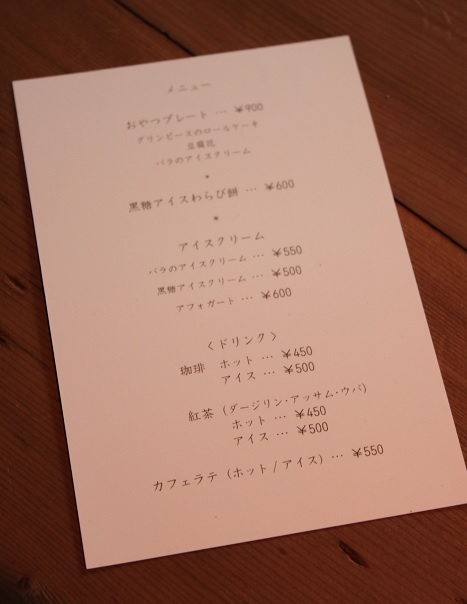 メニュー
おやつプレート … ¥900
グリンピースのロールケーキ
豆腐花
バラのアイスクリーム
*
黒糖アイスわらび餅 … ¥600
*
アイスクリーム
バラのアイスクリーム … ¥550
黒糖アイスクリーム … ¥500
アフォガート … ¥600
〈ドリンク〉
珈琲 ホット … ¥450
アイス … ¥500
紅茶（ダージリン・アッサム・ウバ）
ホット … ¥450
アイス … ¥500
カフェラテ（ホット / アイス）… ¥550